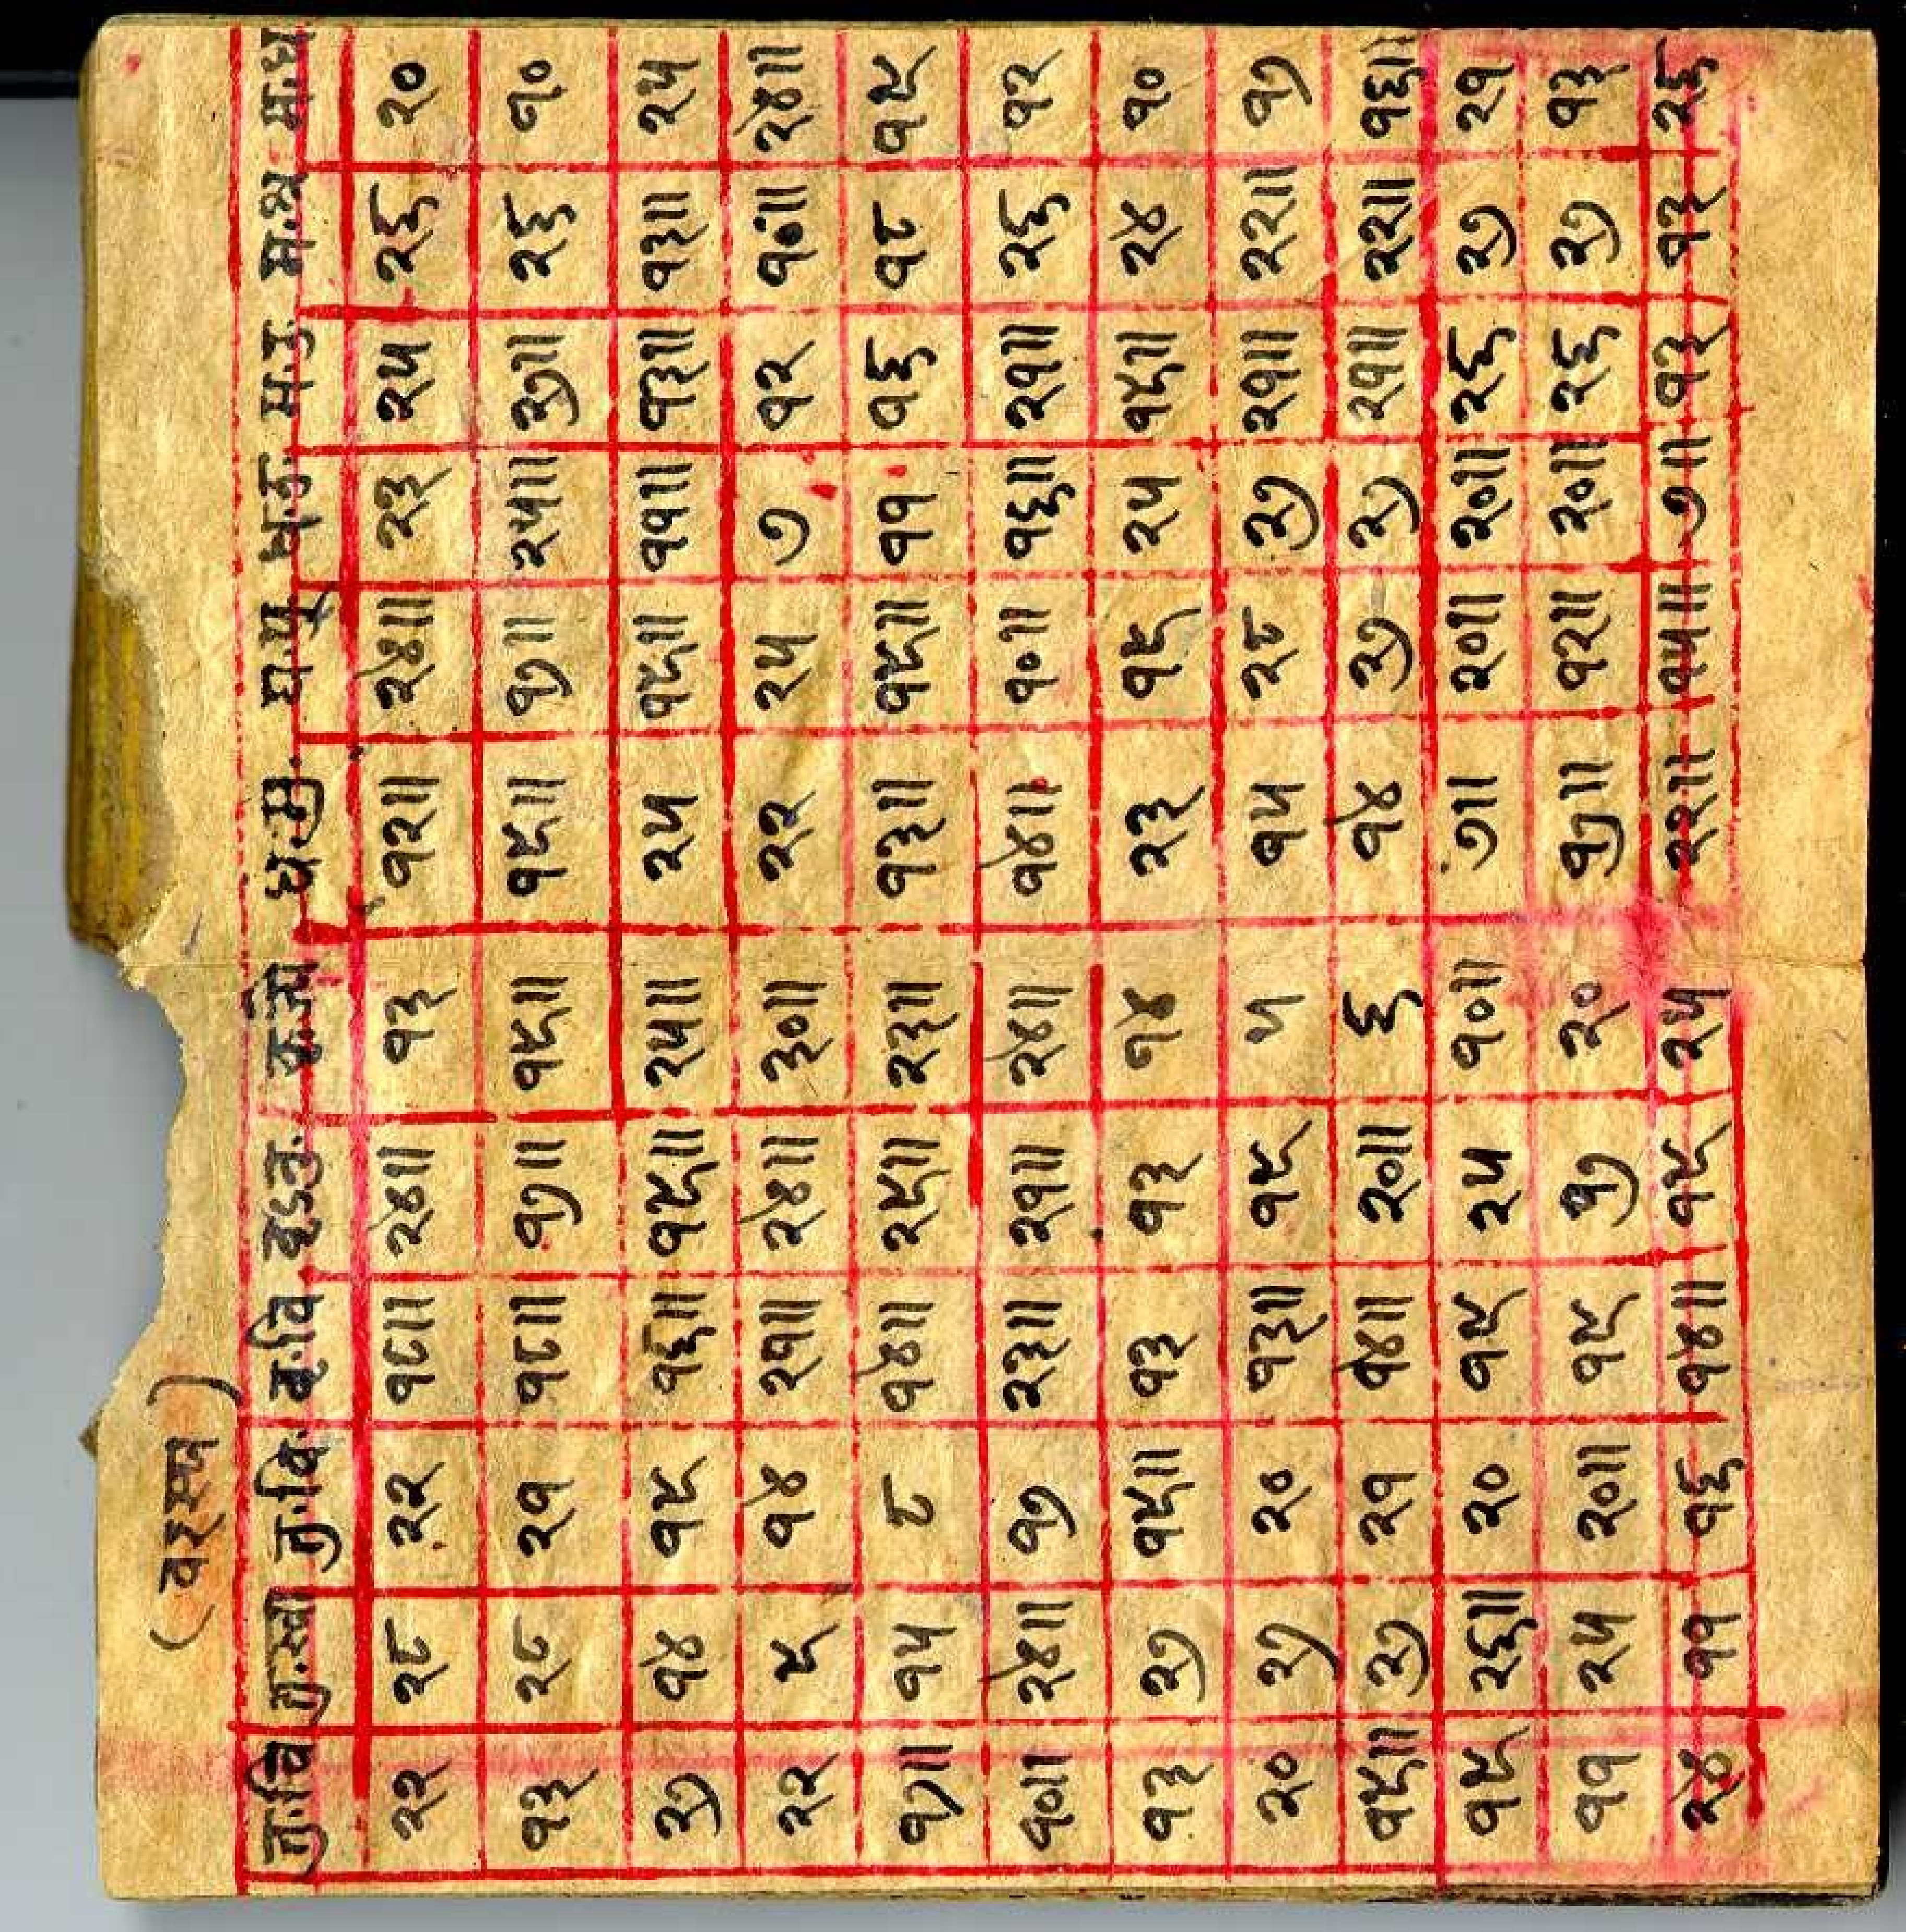 (वरस्य)
तु.चि तु.स्वा तु.वि. वृ.वि. वृऽनु. वृ.ज्ये ध.मू. ध.पू ध.उ. म.उ. म.श्र म.ध
२२ २८ २२ १८॥ २४॥ १३ १२॥ २४॥ २३ २५ २६ २०
१३ २८ २१ १८॥ १७॥ १९॥ १९॥ १७॥ २५॥ २७॥ २६ १०
२७ १४ १९ १६॥ १९॥ २५॥ २५ १९॥ ११॥ १३॥ १३॥ २५
२२ ९ १४ २१॥ २४॥ ३०॥ २२ २५ ७ १२ १०॥ २४॥
१७॥ १५ ८ १४॥ २९॥ २३॥ १३॥ १९॥ ११ १६ १८ १९
१०॥ २४॥ १७ २३॥ २१॥ २४॥ १४॥ १०॥ १६॥ २१॥ २६ १२
१३ २७ १९॥ १३ १३ १४ २३ १९ २५ १९॥ २४ १०
२० २७ २० १३॥ १९ ५ १५ २८ २७ २१॥ २२॥ १७
१९॥ २७ २१ १४॥ २०॥ ६ १४ २७ २७ २१॥ २२॥ १६॥
१९ २६॥ २० १९ २५ १०॥ ७॥ २०॥ २०॥ २६ २७ २१
११ २५ २०॥ १९ १७ २० १७॥ १२॥ २०॥ २६ २७ १३
२४ ११ १६ १४॥ १९ २५ २२॥ १५॥ ७॥ १३ १३ २६